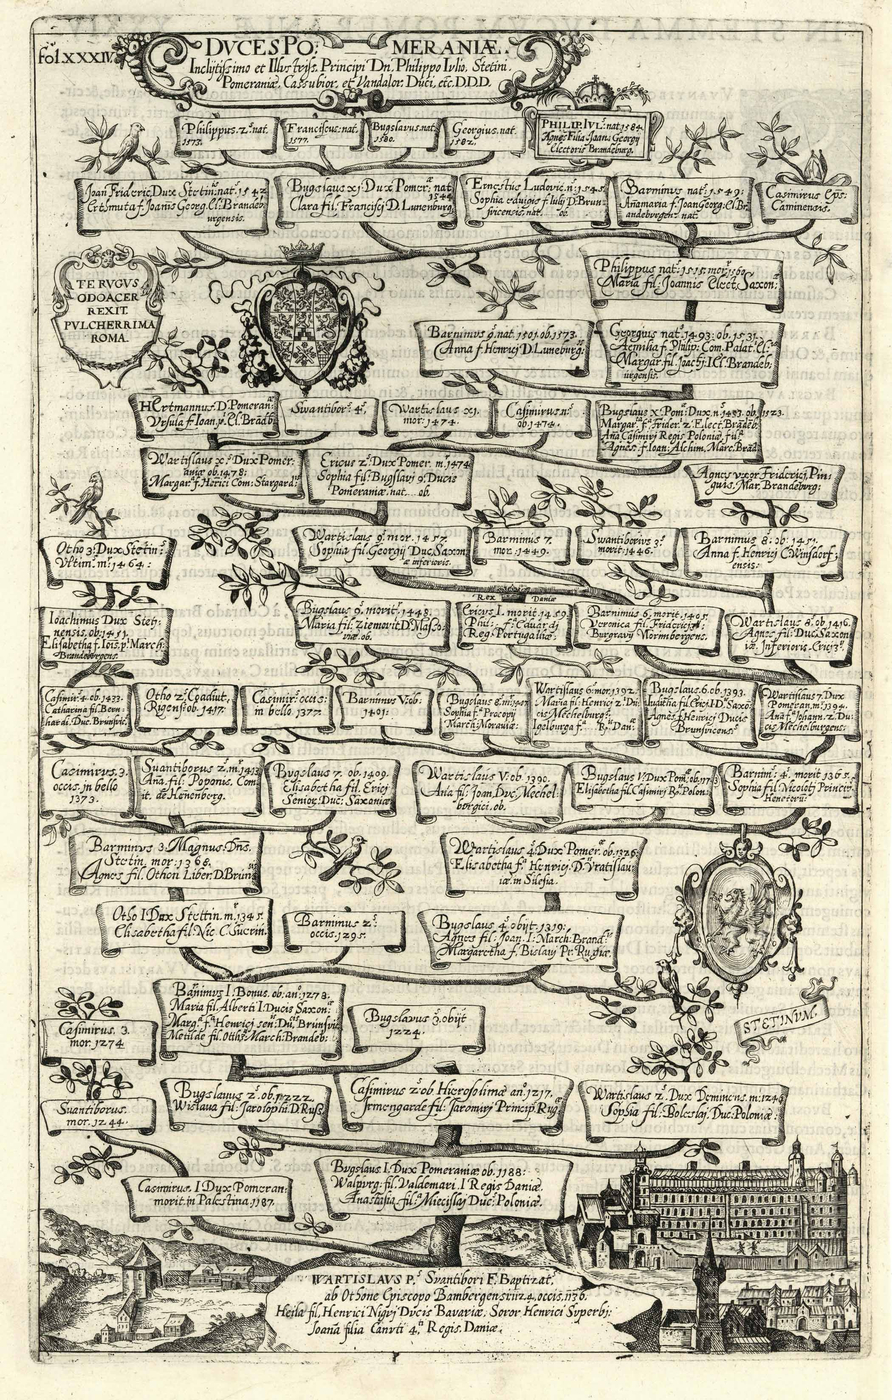 fol XXXIV.
DVCES PO: MERANIÆ.
Inclytissimo et Illustriss. Principi Dn. Philippo Iulio, Stetini.
Pomeraniæ, Cassubior. et Vandalor. Duci, etc. DDD.
Philippus 2.9 nat.
1573.
Franciscus: nat.
1577.
Bugslavus. nat.
1580.
Georgius. nat.
1582.
PHILIP. IVL. nat. 1584.
Agnes Filia Joans Georgij
Electoris Brandeburg.
Joañ Frideric. Dux Stetiñ. nat. 1542
Erthmuta f. Joañis Georg. El. Brandeb
urgensis.
Bugslaus xj. Dux Pomer. nat
1544
Clara fil. Francisci D. Lunenburg.
Ernestus Ludovic. n. 1545
Sophia eduigis f. Iulij D. Brun
svicensis. nat. ob.
Barnimus nat. 1549:
Anamaria f. Joan Georg. El. Br.
andeburgens. nat.
Casimirus Eps.
Caminensis.
TE RVGVS
ODOACER
REXIT.
PVLCHERRIMA
ROMA.
Philippus nat. 1515. mor. 1560.
Maria fil. Joannis Elect. Saxon.
Barnimus 9. nat. 1501. ob. 1573.
Anna f. Henrici D. Luneburg.
Georgius nat. 1493. ob. 1531.
Aemilia f. Philip. Com. Palat. El.
Margar. fil. Joach. I. El. Brandeb
urgensis.
Hertmannus. D. Pomeran.
Vrsula f. Joan. p. El. Brādb.
Swantibor. 4.
Wartislaus XI.
mor. 1474.
Casimirus
ob. 1474.
Bugslaus X. Pom. Dux. n. 1453. ob. 1523.
Margar. f. Frider. 2. Elect. Brādeb.
Aña Casimiri Regis Poloniæ, fil.
Agnes f. Ioan. Alchim. Marc. Brād.
Wartislaus X. Dux Pomer.
aniæ ob. 1478.
Margar. f. Herici Com: Stargard.
Ericus 2. Dux Pomer. m. 1474
Sophia fil. Bugslai 9. Ducis
Pomeraniæ. nat... ob.
Agnes vxor Friderici Pin:
guis. Mar. Brandeburg:
Otho 3. Dux Stetin:
Vltim. m. 1464:
Wartislaus 9. mor. 1457.
Sophia fil. Georgij Duc. Saxon
æ inferioris.
Barnimus 7.
mor. 1449.
Svantiborus 3.
morit. 1446.
Barnimus 8. ob. 1451.
Anna f. Henrici C. Winsdorf:
ensis.
Ioachimus Dux Stet:
nensis. ob. 1451.
Elisabetha f. Iois. p. March.
Brandeburgens.
Bugslaus 9. morit. 1448.
Maria fil: Ziemovit D. Maso:
viæ. ob.
Rex Daniæ
Ericus I. morit. 1459.
Phil: fil: Eduardi
Reg. Portugaliæ.
Barnimus 6. morit. 1405.
Veronica fil. Friderici
Burgravij Normbergens.
Wartislaus 8. ob. 1416.
Agnes fil: Duc. Saxon
iæ. Inferioris. Erici 3.
Casimir. 4. ob. 1433.
Catharina fil. Bern:
hardi. Duc. Brunsvic.
Otho 2. Coadiut.
Rigens. ob. 1417.
Casimir. occis.
in bello 1377.
Barnimus V. ob:
1401.
Bugslaus 8.
Sophia f. Procopij
March. Moraviæ.
Wartislaus 6. mor. 1392.
Maria fil: Henrici 2. Du
cis Mechelburg.
Igelburga f. R. Dan:
Bugslaus 6. ob. 1393.
Iudittha fil. Erici I. D. Saxō.
Agnes f. Henrici Ducis
Brunsvicens.
Wartislaus 7. Dux
Pomeran. m. 1394.
Ana f. Johann. 2. Du:
cis Mechelburgens.
Casimirus. 3.
occis. in bello
1373.
Svantiborus 2. m. 1413
Ana. fil: Poponis. Com
it. de Henenberg.
Bugslaus 7. ob. 1409.
Elisabetha fil. Erici
Senior. Duc: Saxoniæ
Wartislaus V. ob. 1390.
Ana fil: Joan. Duc. Mechel
borgici. ob.
Bugslaus V. Dux Pom. ob. 1373
Elisabetha fil. Casimiri R. Polon:
Barnim: 4. morit 1365.
Sophia fil Nicoloti Princip
Henetoru
Barnimus 3. Magnus Dns.
Stetin. mor. 1368.
Agnes fil. Othon Liber D. Bruns
Wartislaus 4. Dux Pomer. ob. 1326.
Elisabetha f. Henrici D. Vratislau:
iæ. in Silesia.
Otho I Dux Stettin. m. 1345.
Elisabetha fil. Nic. C. Suerin.
Barnimus 2.
occis. 1295.
Bugslaus 4. obijt. 1319:
Agnes fil: Joan. I. March: Brand
Margaretha f. Bislaij Pr. Rugiæ.
STETINVM.
Casimirus. 3.
mor. 1274
Barnimus I. Bonus. ob. an. 1278.
Maria fil. Alberti I. Ducis Saxon.
Marg. f. Henrici sen. Du. Brunsvic
Metilde fil. Othis March. Brandeb.
Bugslavus 3. obijt
1224.
Svantiborus.
mor. 1244.
Bugslavus 2. ob. 1222.
Wislava fil: Jaroslphi D. Russ.
Casimirus 2. ob Hierosolimæ an. 1217.
Irmengarde fil: Jaromirj Princip Rug.
Wartislaus 2. Dux Deminens. m. 1246
Sophia fil. Boleslaj. Duc. Poloniæ.
Casimirus. I Dux Pomeran:
morit. in Palestina. 1187.
Bugslavus I. Dux Pomeraniæ ob. 1188:
Walpurg: fil. Valdemari. I Regis Daniæ.
Anastasia fil. Miecislaj Duc. Poloniæ.
WARTISLAVS P. Svantibori F. Baptizat.
ab Othone Episcopo Bambergens. 1124. occis. 1136.
Heila fil. Henrici Nigri Ducis Bavariæ. Soror Henrici Superbj:
Joana filia Canuti 4. Regis. Daniæ.